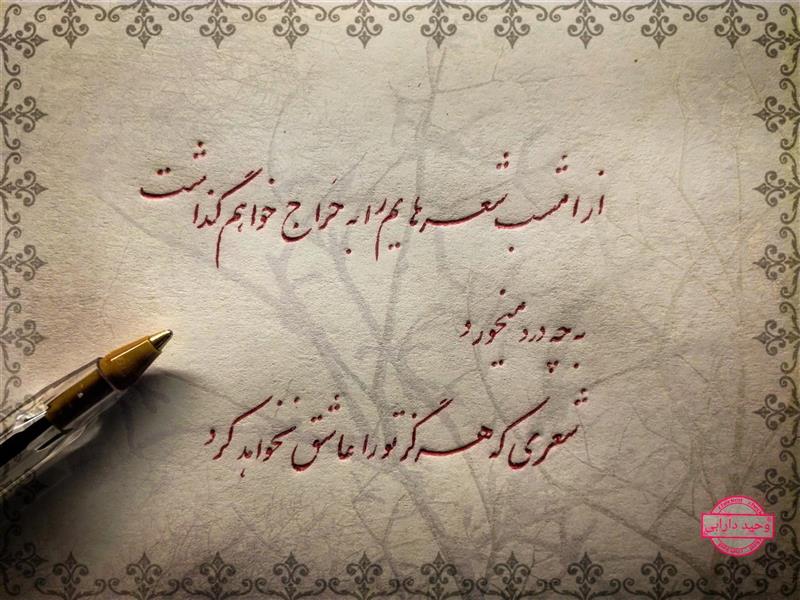 از امشب شعرهایم را به حَراج خواهم گذاشت
به چه درد میخورد
شعری که هرگز تو را عاشق نخواهد کرد
وحید دارابی